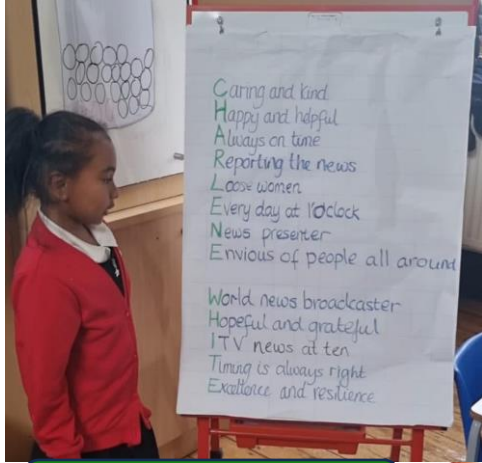 Caring and kind
Happy and helpful
Always on time
Reporting the news
Loose women
Every day at 1'oclock
News presenter
Envious of people all around
World news broadcaster
Hopeful and grateful
ITV news at ten
Timing is always right
Excellence and resilience